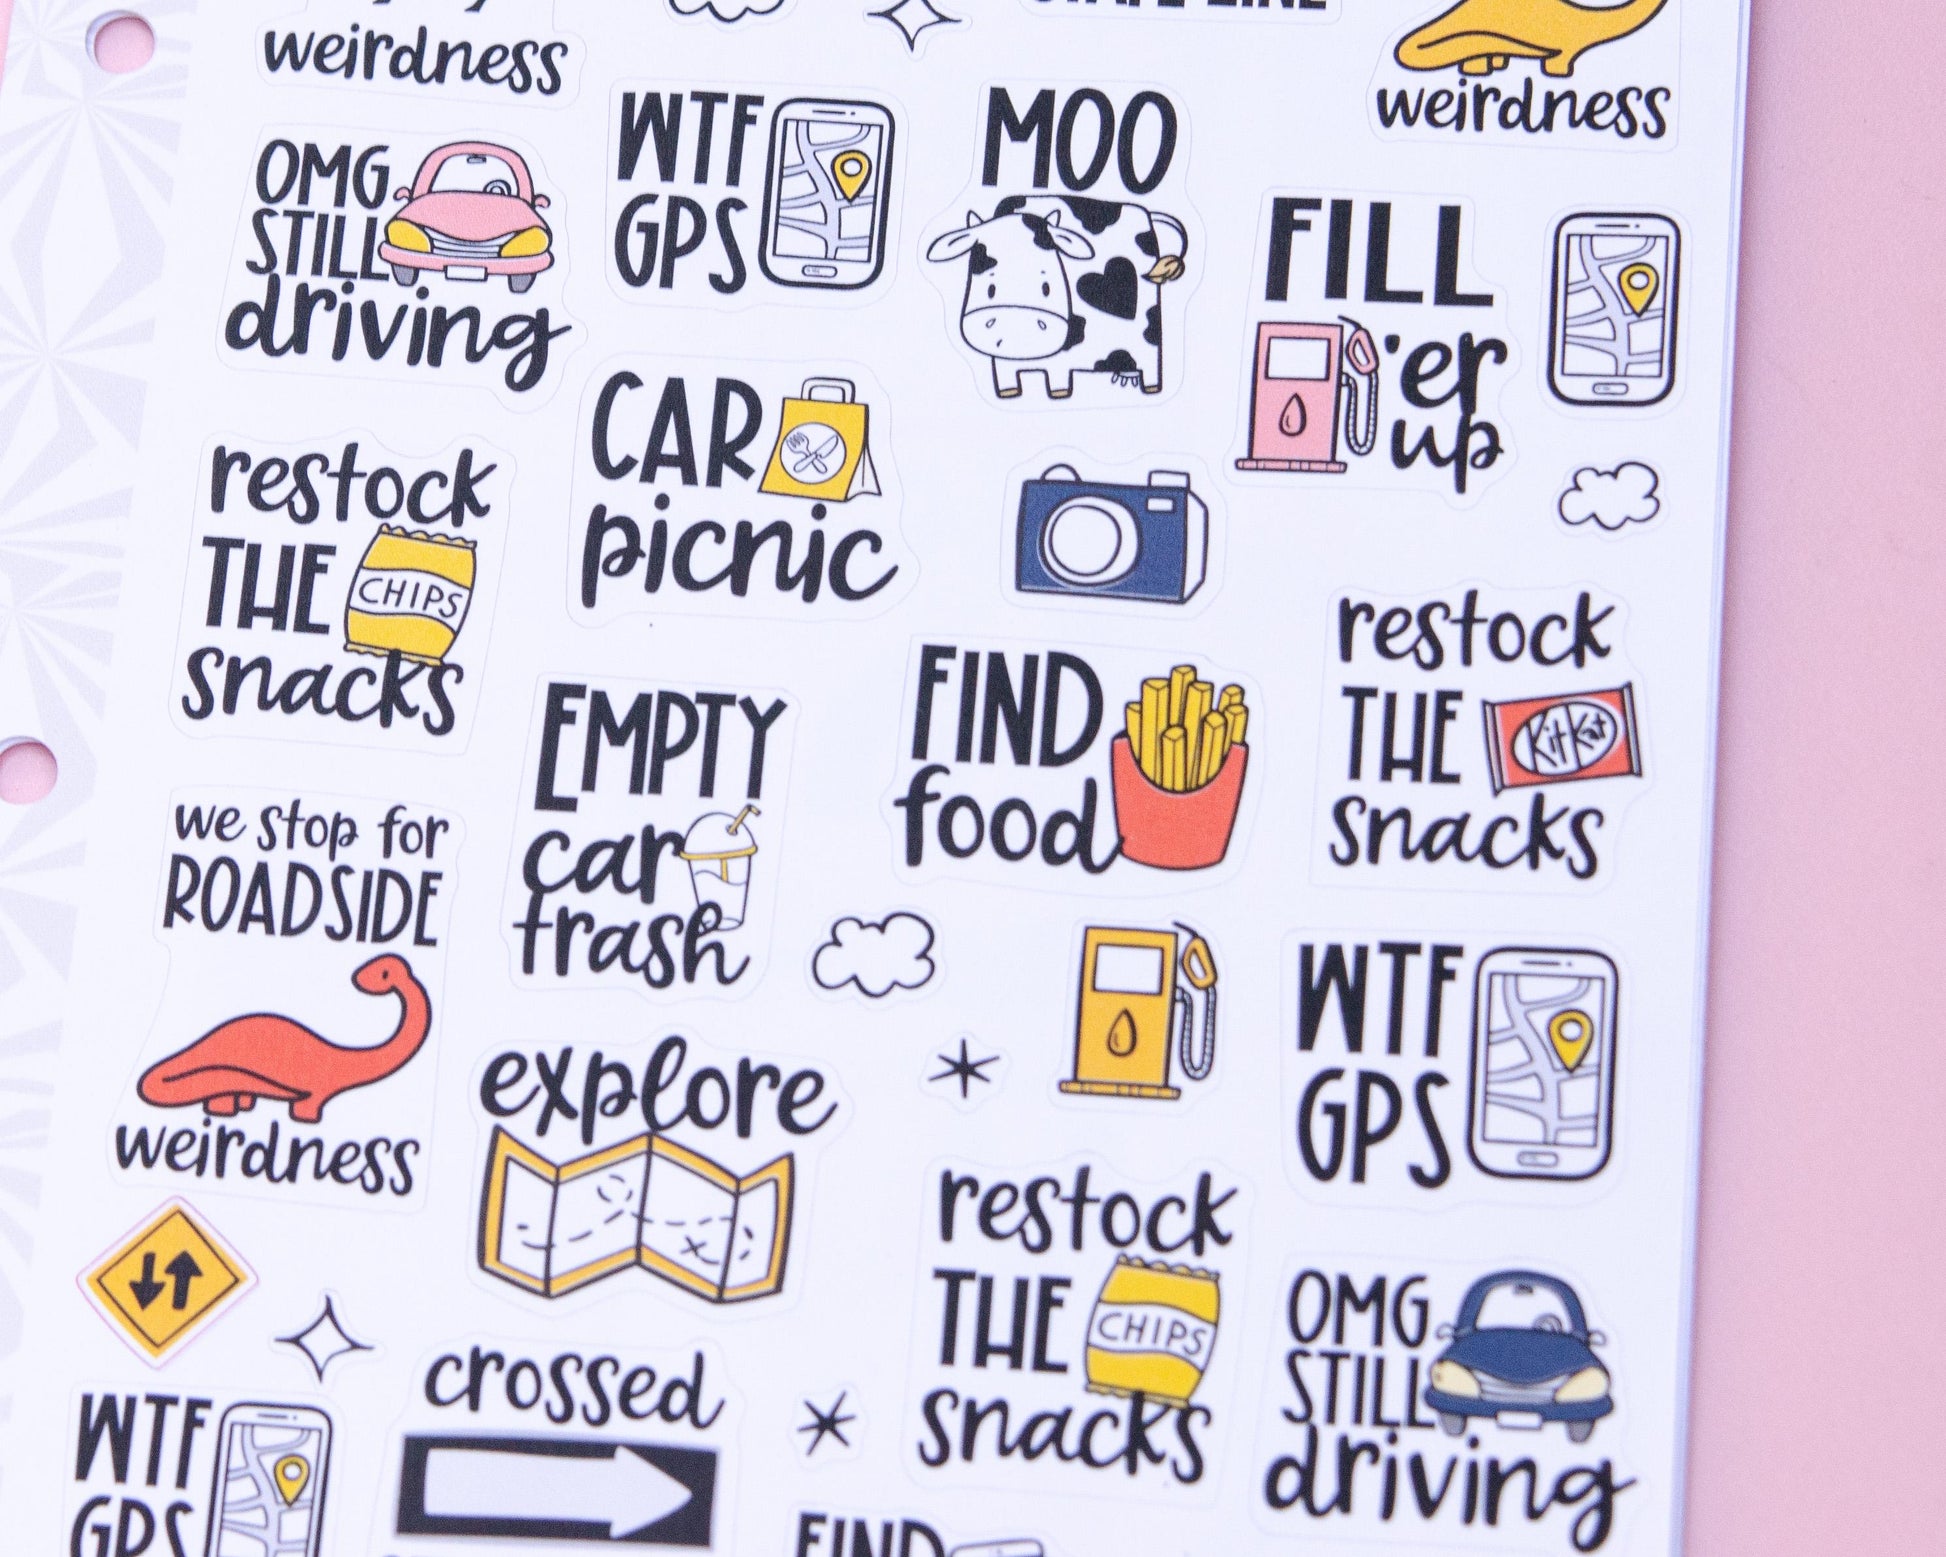 weirdness
STATE LINE
weirdness
OMG
STILL
driving
WTF
GPS
MOO
FILL
'er
up
restock
THE
CHIPS
snacks
CAR
picnic
FIND
food
restock
THE
KitKat
snacks
we stop for
ROADSIDE
weirdness
EMPTY
car
trash
explore
WTF
GPS
restock
THE
CHIPS
snacks
OMG
STILL
driving
WTF
GPS
crossed
FIND